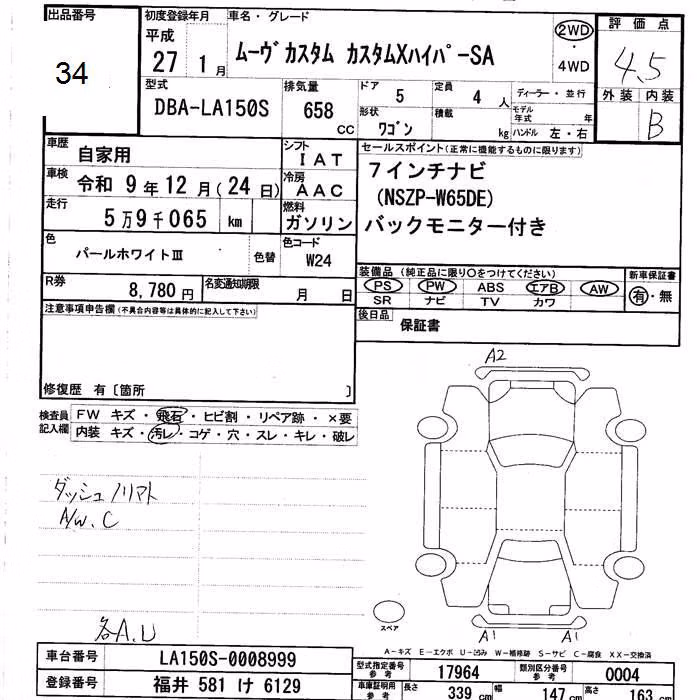 出品番号
34
初度登録年月
平成
27 1 月
車名・グレード
ムーヴ カスタム カスタムXハイパーSA
2WD
・
4WD
評価点
4.5
外装 内装
B
型式
DBA-LA150S
排気量
658
CC
ドア
5
定員
4 人
ディーラー・並行
形状
ワゴン
積載
kg
モデル年式 年
ハンドル 左・右
車歴
自家用
シフト
IAT
車検
令和 9 年 12 月 ( 24 日)
冷房
AAC
走行
5 万 9 千 065 km
燃料
ガソリン
セールスポイント(正常に機能するものに限ります)
7インチナビ
(NSZP-W65DE)
バックモニター付き
色
パールホワイトⅢ
色替
色コード
W24
R券
8,780 円
名変通知期限
月 日
装備品 (純正品に限り○をつけてください)
PS PW ABS エアB AW
SR ナビ TV カワ
新車保証書
有・無
後日品
保証書
注意事項申告欄(不具合内容等は具体的に記入して下さい)
修復歴 有〔箇所 〕
検査員
記入欄
FW キズ・飛石・ヒビ割・リペア跡・×要
内装 キズ・汚レ・コゲ・穴・スレ・キレ・破レ
ダッシュノリマト
A/W、C
各A、U
A2
A1 A1
スペア
A-キズ E-エクボ U-凹み W-補修跡 S-サビ C-腐食 XX-交換済
車台番号
LA150S-0008999
登録番号
福井 581 け 6129
型式指定番号
参考
17964
類別区分番号
参考
0004
車庫証明用
参考
長さ
339 cm
幅
147 cm
高さ
163 cm